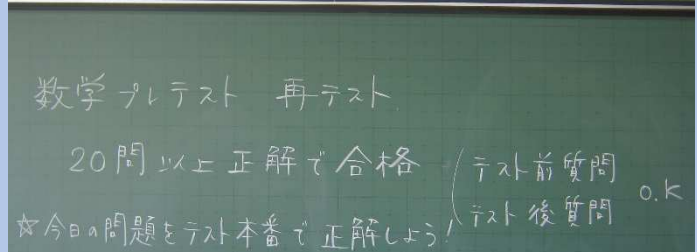 数学プレテスト 再テスト
20問以上正解で合格
(テスト前質問
テスト後質問 O.K
☆今日の問題をテスト本番で正解しよう!